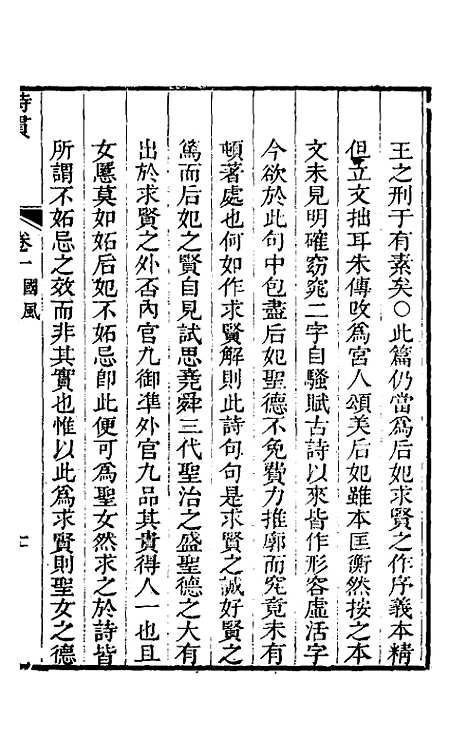 王之刑于有素矣○此篇仍當爲后妃求賢之作序義本精
但立文拙耳朱傳攺爲宮人頌美后妃雖本匡衡然按之本
文未見明確窈窕二字自騷賦古詩以來皆作形容虛活字
今欲於此句中包盡后妃聖德不免費力推廓而究竟未有
頓著處也何如作求賢解則此詩句句是求賢之誠好賢之
篤而后妃之賢自見試思堯舜三代聖治之盛聖德之大有
出於求賢之外否內官九御準外官九品其貴得人一也且
女慝莫如妬后妃不妬忌卽此便可爲聖女然求之於詩皆
所謂不妬忌之效而非其實也惟以此爲求賢則聖女之德
詩貫
卷一國風